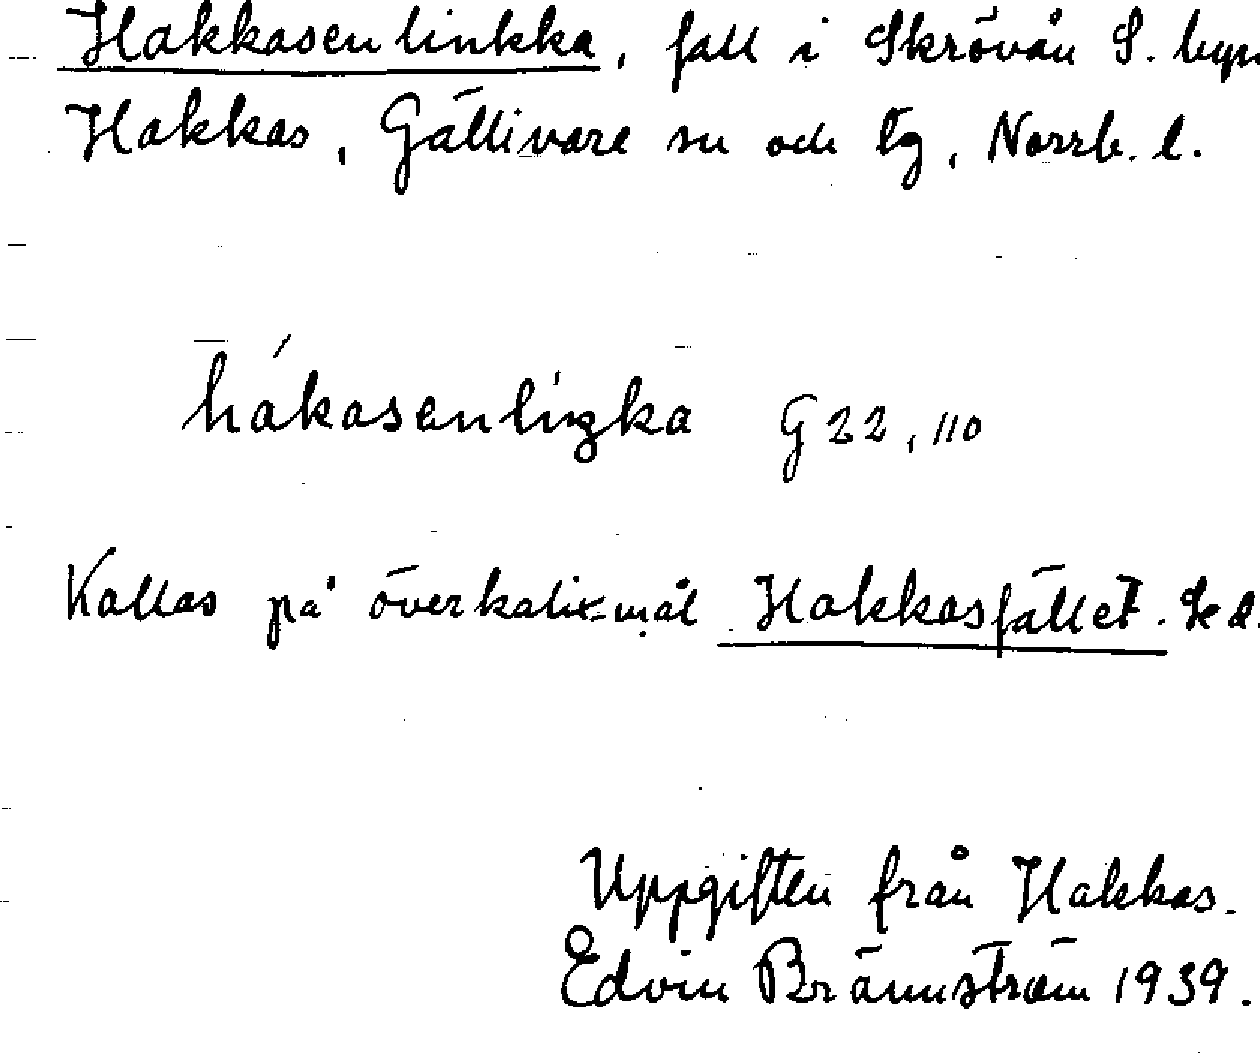 Hakkasenlinkka, fall i Skrövån S. byn
Hakkas, Gällivare sn och tg, Norrb. l.
hákasenlíŋka G 22, 110
Kallas på överkalixmål Hakkasfället.
Uppgiften från Hakkas.
Edvin Brännström 1939.